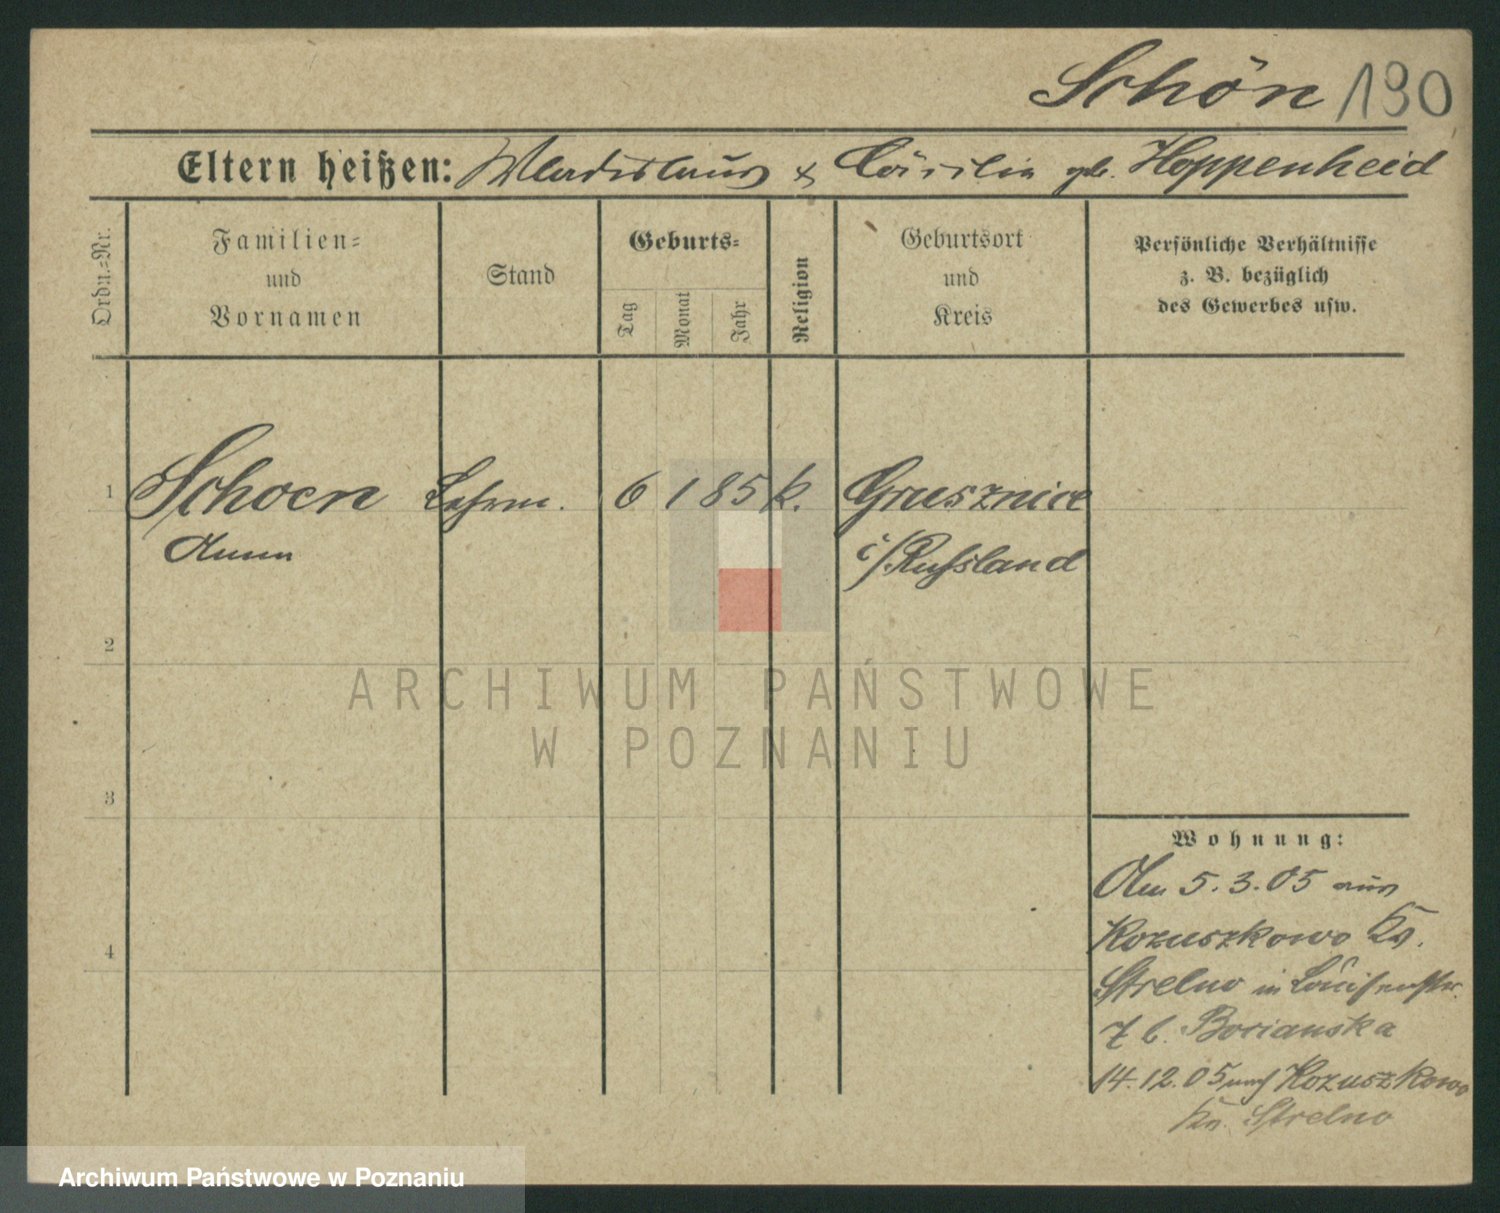 Schön 190
Eltern heißen: Wladislaus & Cäcilia geb. Hoppenheid
Ordn.-Nr.
Familien-
und
Vornamen
Stand
Geburts-
Tag
Monat
Jahr
Religion
Geburtsort
und
Kreis
Persönliche Verhältnisse
z. B. bezüglich
des Gewerbes usw.
1 Schoen 6 1 85 k. Grusznice
Anna i/Russland
2
ARCHIWUM PAŃSTWOWE
W POZNANIU
3
Wohnung:
Am 5.3.05 aus
Kozuszkowo Kr.
4
Strelno in Louisenstr.
7 b. Borianska
14.12.05 nach Kozuszkowo
Kr. Strelno
Archiwum Państwowe w Poznaniu